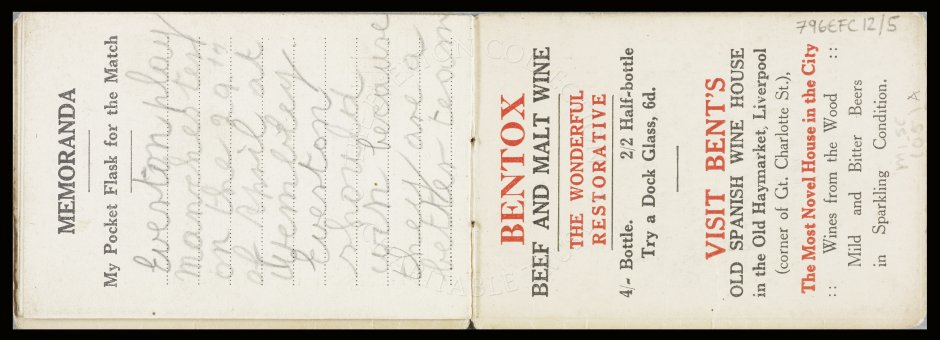 MEMORANDA
My Pocket Flask for the Match
Everton play
Manchester
on the 29th
of april at
Wembley
Everton
should
win because
they are a
better team
BENTOX
BEEF AND MALT WINE
THE WONDERFUL
RESTORATIVE
4/- Bottle. 2/2 Half-bottle
Try a Dock Glass, 6d.
VISIT BENT'S
OLD SPANISH WINE HOUSE
in the Old Haymarket, Liverpool
(corner of Gt. Charlotte St.),
The Most Novel House in the City
:: Wines from the Wood ::
Mild and Bitter Beers
in Sparkling Condition.
796EFC12/5
MISC
105 A